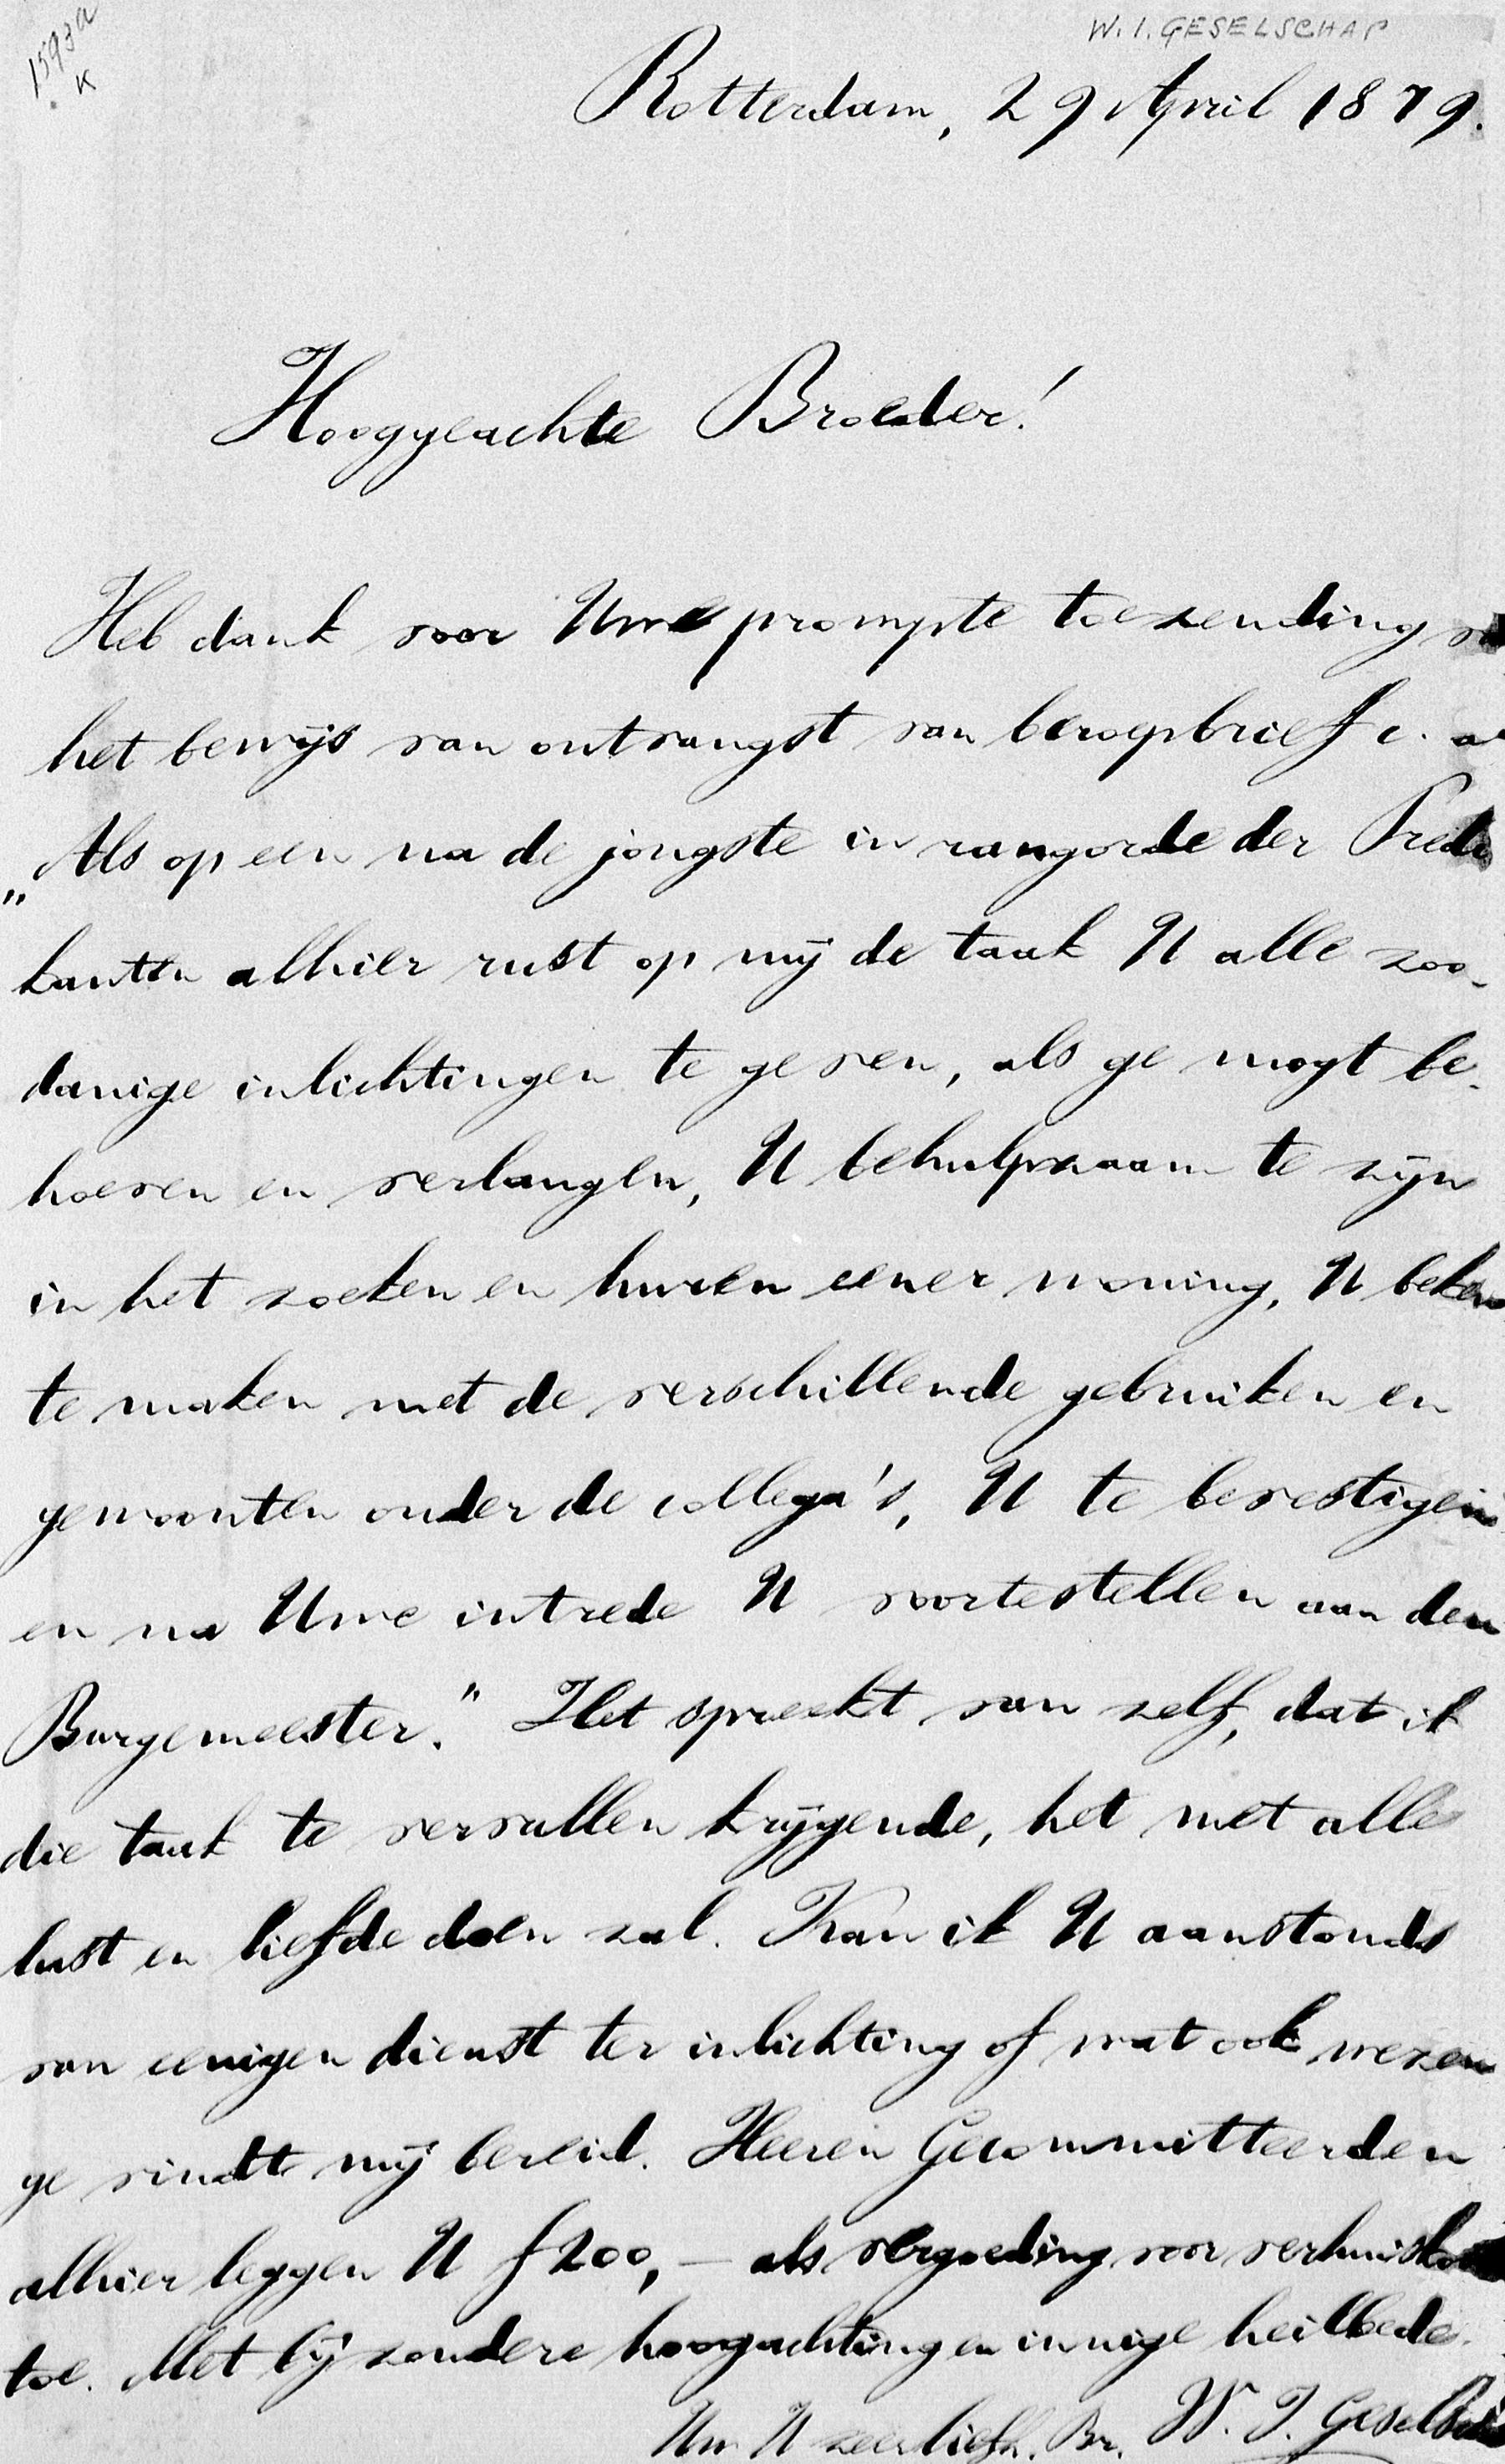 1593a
K
W. I. GESELSCHAP
Rotterdam, 29 April 1879.
Hooggeachte Broeder!
Heb dank voor Uwe prompte toezending
het bewijs van ontvangst van beroepbrief c. a
„Als op een na de jongste in rangorde der Predi
kanten alhier rust op mij de taak U alle zoo-
danige inlichtingen te geven, als ge mogt be-
hoeven en verlangen, U behulpzaam te zijn
in het zoeken en huren eener woning, U beken
te maken met de verschillende gebruiken en
gewoonten onder de collega's, U te bevestigen
en na Uwe intrede U voortestellen aan den
Burgemeester." Het spreekt van zelf, dat ik
die taak te vervullen krijgende, het met alle
lust en liefde doen zal. Kan ik U aanstonds
van eenigen dienst ter inlichting of wat ook wezen
ge vindt mij bereid. Heeren Gecommitteerden
alhier leggen U f 200,— als vergoeding voor verhuisko
toe. Met bijzondere hoogachting en innige heilbede.
Uw U zeer liefh. Br. W. I. Geselsch